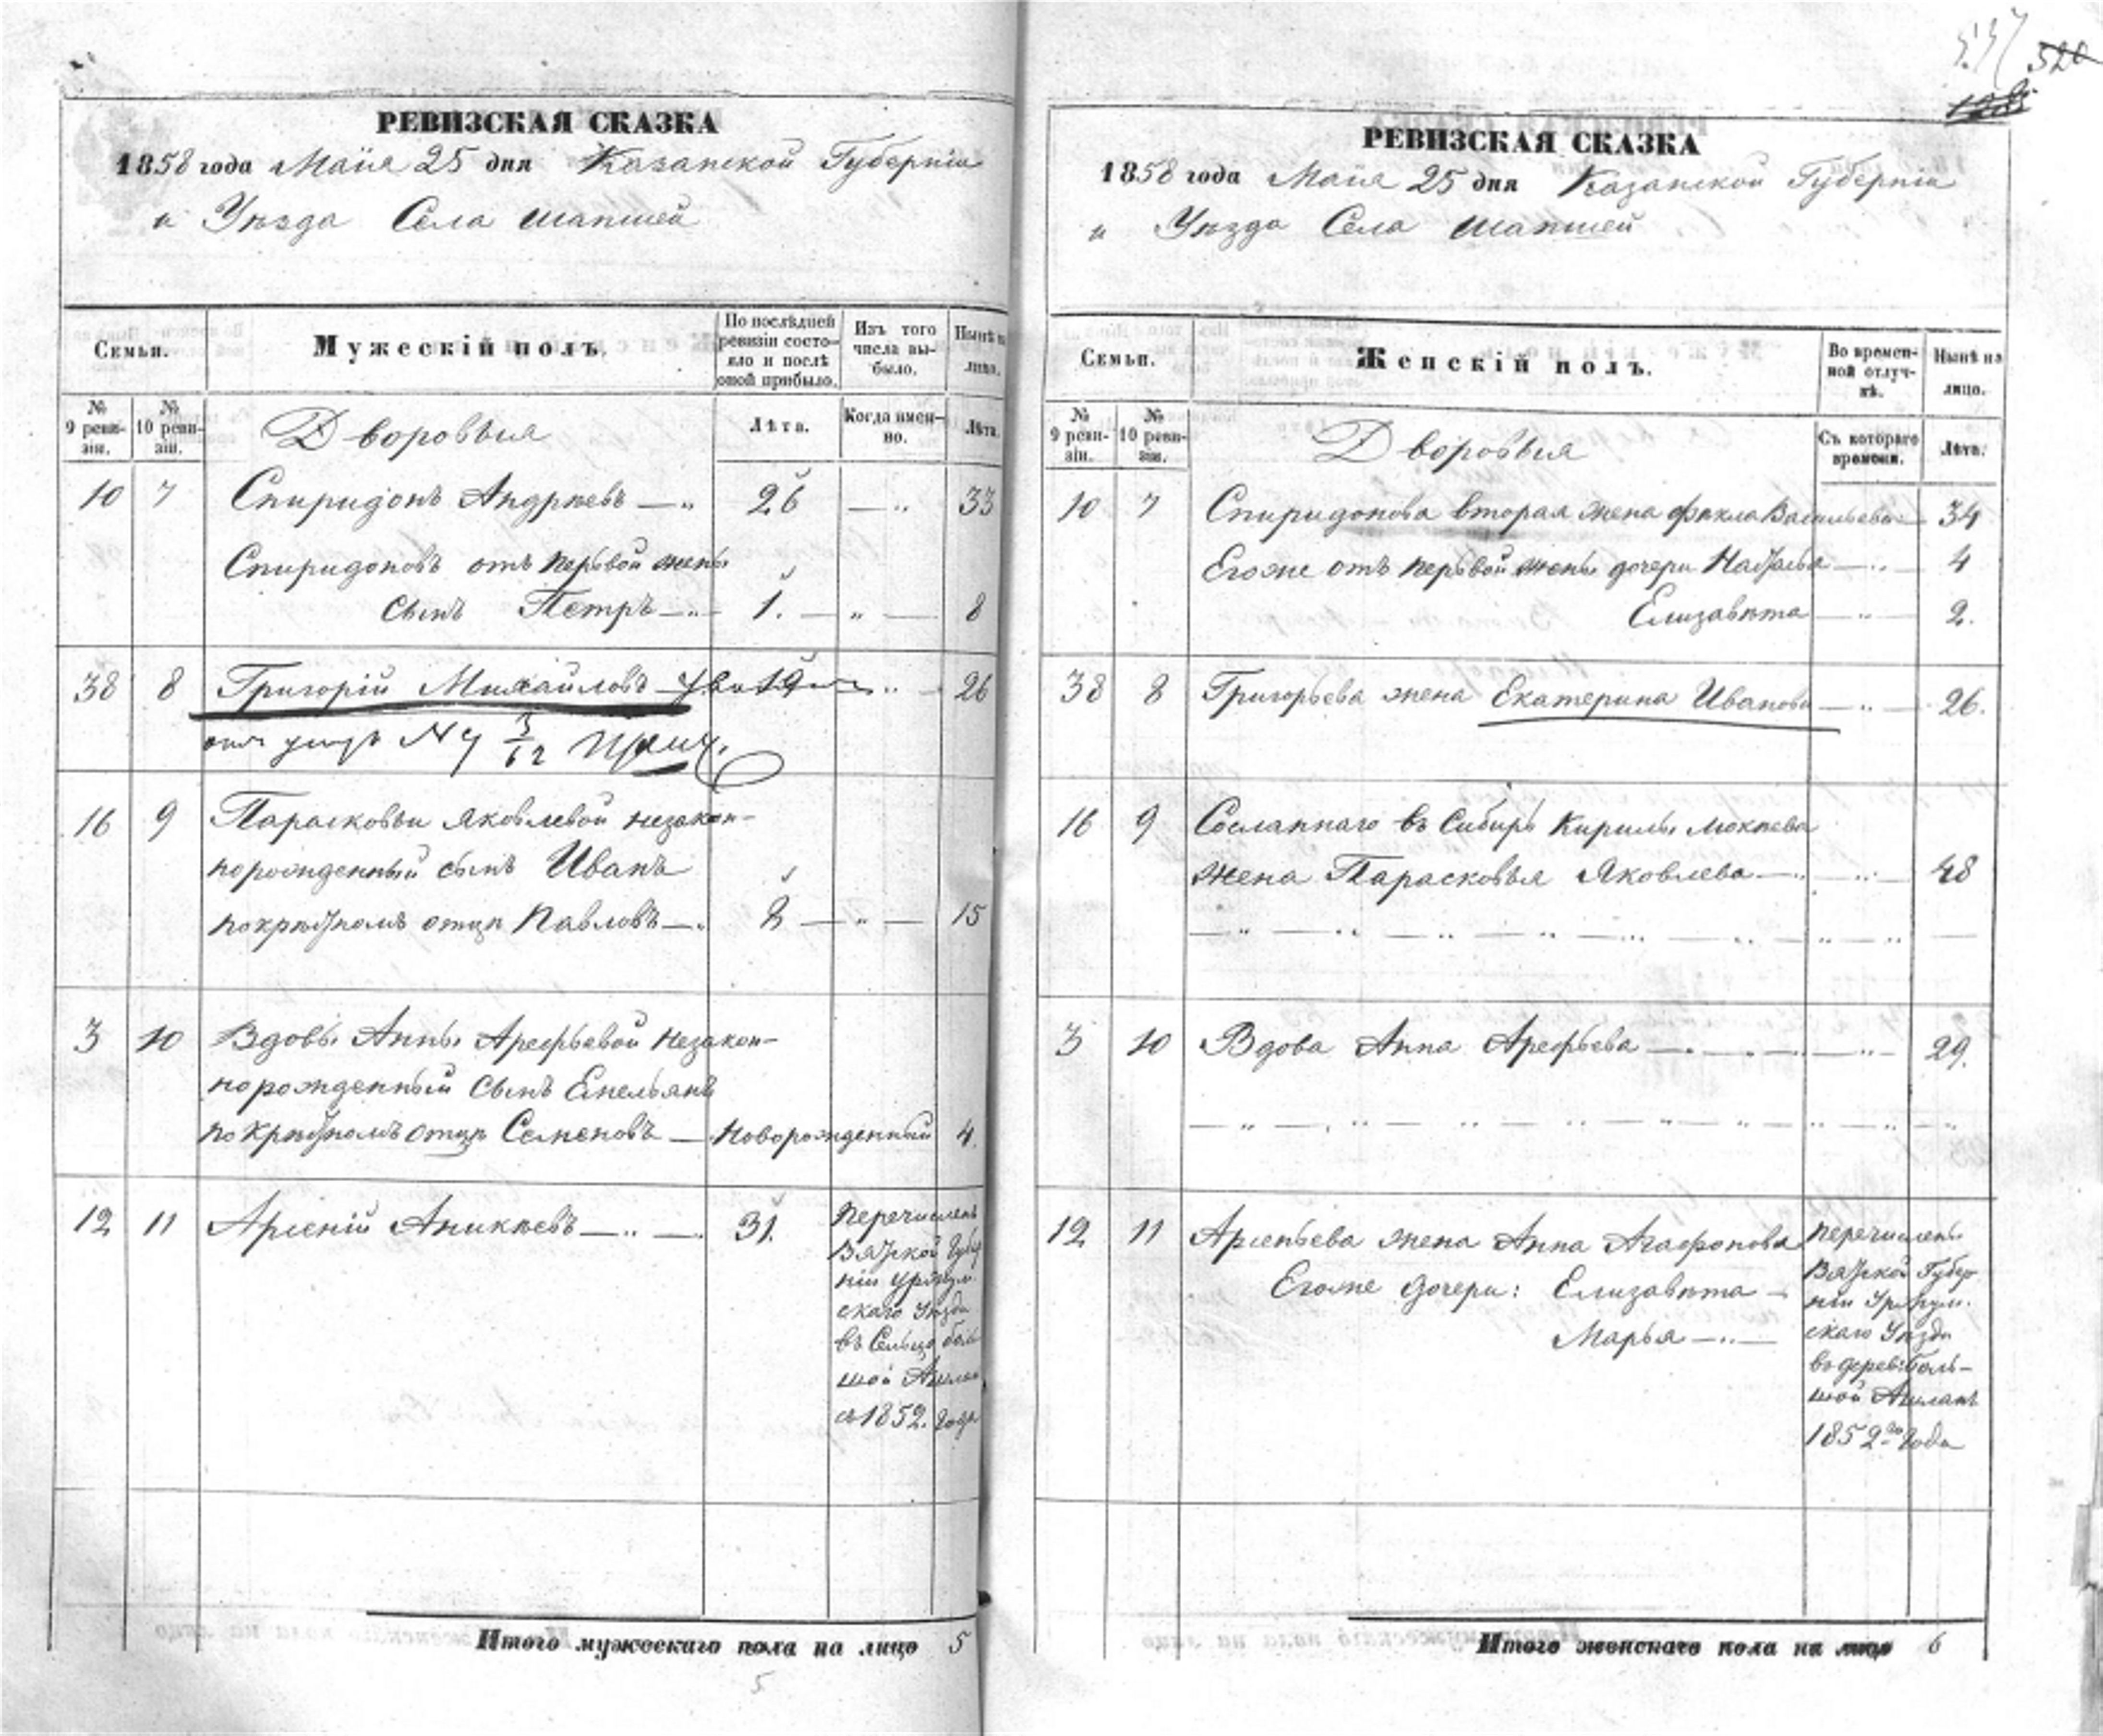 РЕВИЗСКАЯ СКАЗКА
1858 года Маія 25 дня Казанской Губерніи
и Уѣзда Села Шапшей
Семьи.
Мужескій полъ.
По послѣдней ревизіи состояло и послѣ оной прибыло.
Изъ того числа выбыло.
Нынѣ на лицо.
№ 9 ревизіи.
№ 10 ревизіи.
Дворовыя
Лѣта.
Когда именно.
Лѣта.
10 7 Спиридонъ Андрѣевъ — 26 — 33
Спиридоновъ отъ первой жены
сынъ Петръ — 1. — „ — 8
38 8 Григорій Михайловъ 19 26
№ 4 3/62
16 9 Парасковьи Яковлевой незакон-
норожденный сынъ Иванъ
по крѣстномъ отцѣ Павловъ — 8 — „ — 15
3 10 Вдовы Анны Арефьевой незакон-
норожденный сынъ Емельянъ
по крѣстномъ отцѣ Семеновъ — новорожденный 4.
12 11 Арсеній Аникѣевъ — 31.
Перечисленъ
Вятской Губер
ніи Уржум-
скаго Уѣзда
въ Сельцо боль
шой
съ 1852. Года
Итого мужескаго пола на лицо 5
5
520
РЕВИЗСКАЯ СКАЗКА
1858 года Маія 25 дня Казанской Губерніи
и Уѣзда Села Шапшей
Семьи.
Женскій полъ.
Во временной отлучкѣ.
Нынѣ на лицо.
№ 9 ревизіи.
№ 10 ревизіи.
Дворовыя
Съ котораго времени.
Лѣта.
10 7 Спиридонова вторая жена Фекла Васильева — 34
Егоже отъ первой жены дочери Наталья — 4
Елизавѣта — 2.
38 8 Григорьева жена Екатерина Иванова — 26.
16 9 Сосланнаго въ Сибирь Кирилы Мокѣева
жена Парасковья Яковлева — 48
3 10 Вдова Анна Арефьева — 29.
12 11 Арсеньева жена Анна Агафонова
Егоже дочери: Елизавѣта —
Марья —
перечислены
Вятской Губер
ніи Уржум-
скаго Уѣзда
въ дерев: Боль-
шой
1852го Года
Итого женскаго пола на лицо 6